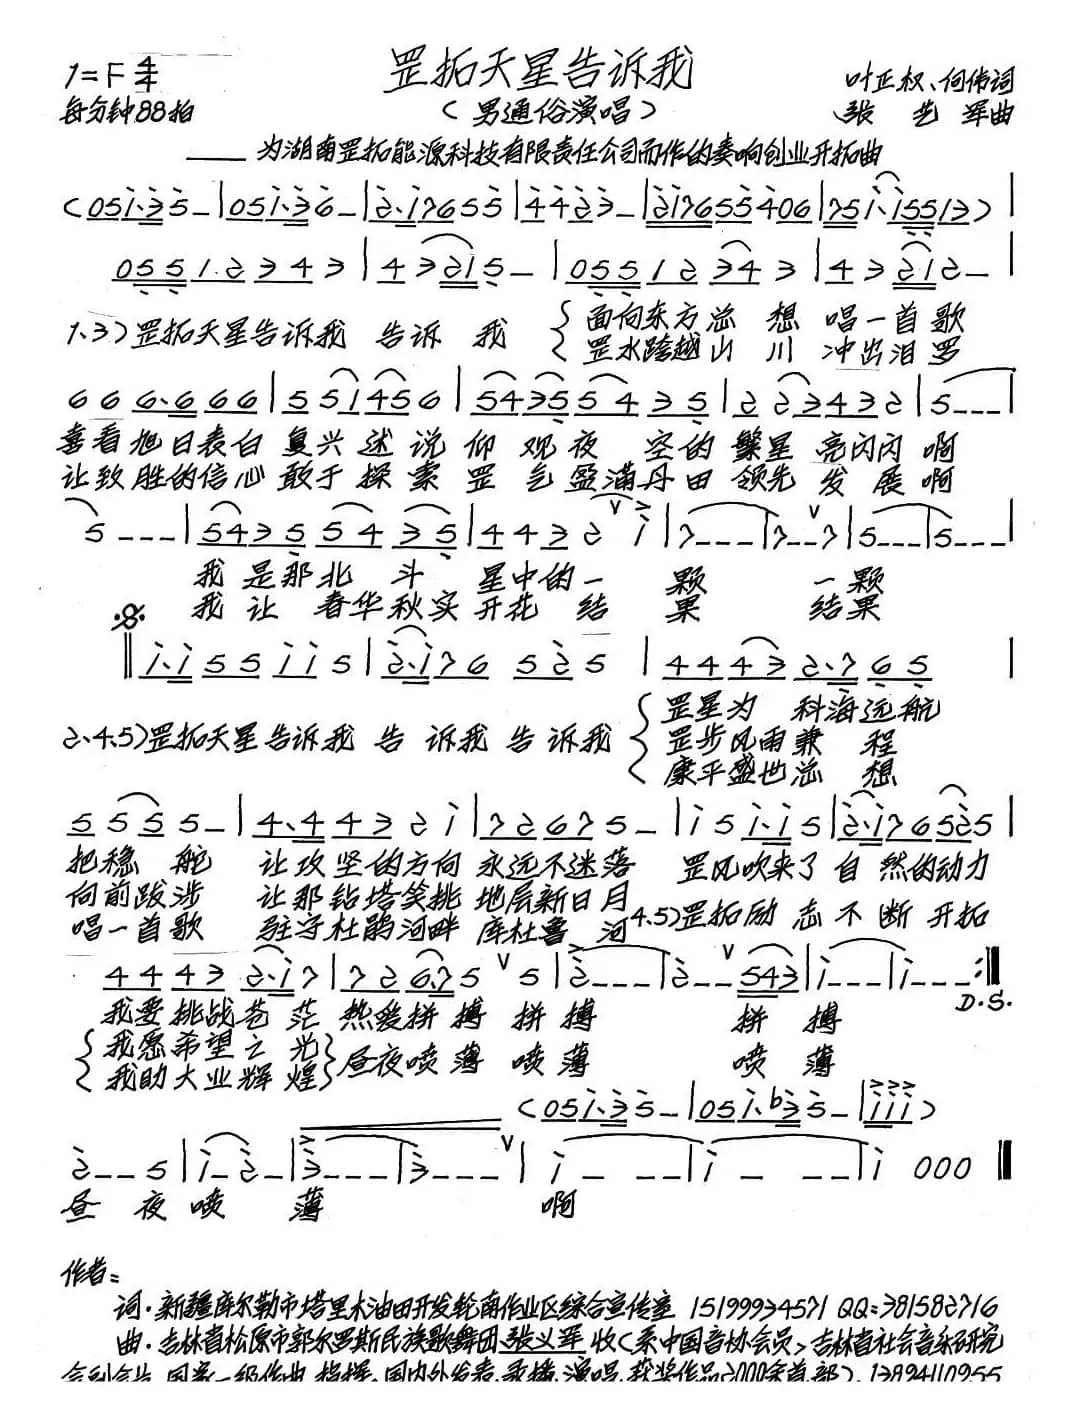 罡拓天星告诉我
1=F 4/4
每分钟88拍
(男通俗演唱)
叶正权、何伟词
张艺军曲
——为湖南罡拓能源科技有限责任公司而作的奏响创业开拓曲
(051·35–|051·36–|2·17655|44223–|21765540 6|751·15513)|
05512343|43215–|05512343|43212–
1、3)罡拓天星告诉我 告诉 我 { 面向东方总 想 唱一首歌
罡水跨越山 川 冲出汨罗
666·666|551456|54355435|223432|5–––|
喜看旭日表白 复兴 述说 仰观夜 空的 繁星 亮闪闪 啊
让致胜的信心 敢于 探索 罡气盈满丹田 领先 发展啊
5–––|54355435|44322 1|7–––|7––7|5–––|5–––|
我是那北 斗 星中的一 颗 一颗
我让 春华秋实 开花 结 果 结果
1·155115|2·176525|44432·765|
2、4、5)罡拓天星告诉我 告 诉我 告诉我 { 罡星为 科海远航
罡步风雨兼 程
康平盛世总 想
5555–|4·44321|72675–|151·15|2·176525|
把稳 舵 让攻坚的方向 永远不迷落 罡风吹来了自然的动力
向前跋涉 让那钻塔笑挑 地层新日月
唱一首歌 驻守杜鹃河畔 库杜鲁 河 4.5)罡拓励志不断开拓
44432·17|726·75 5|2–––|2–– 543|1–––|1–––:|
D.S.
我要挑战苍茫 热爱拼搏 拼搏 拼 搏
{ 我愿希望之光 } 昼夜喷薄 喷薄 喷 薄
我助大业辉煌
(051·35–|051·b35–|111)
2––5|1·–2–|3–––|3–––|1–––|1–––|1 000
昼 夜喷 薄 啊
作者:
词·新疆库尔勒市塔里木油田开发轮南作业区综合宣传室 15199934571 QQ:381582716
曲·吉林省松原市郭尔罗斯民族歌舞团张义军收(系中国音协会员、吉林省社会音乐研究
会副会长 国家一级作曲 指挥、国内外发表、录播、演唱、获奖作品2000余首、部)、13894110955